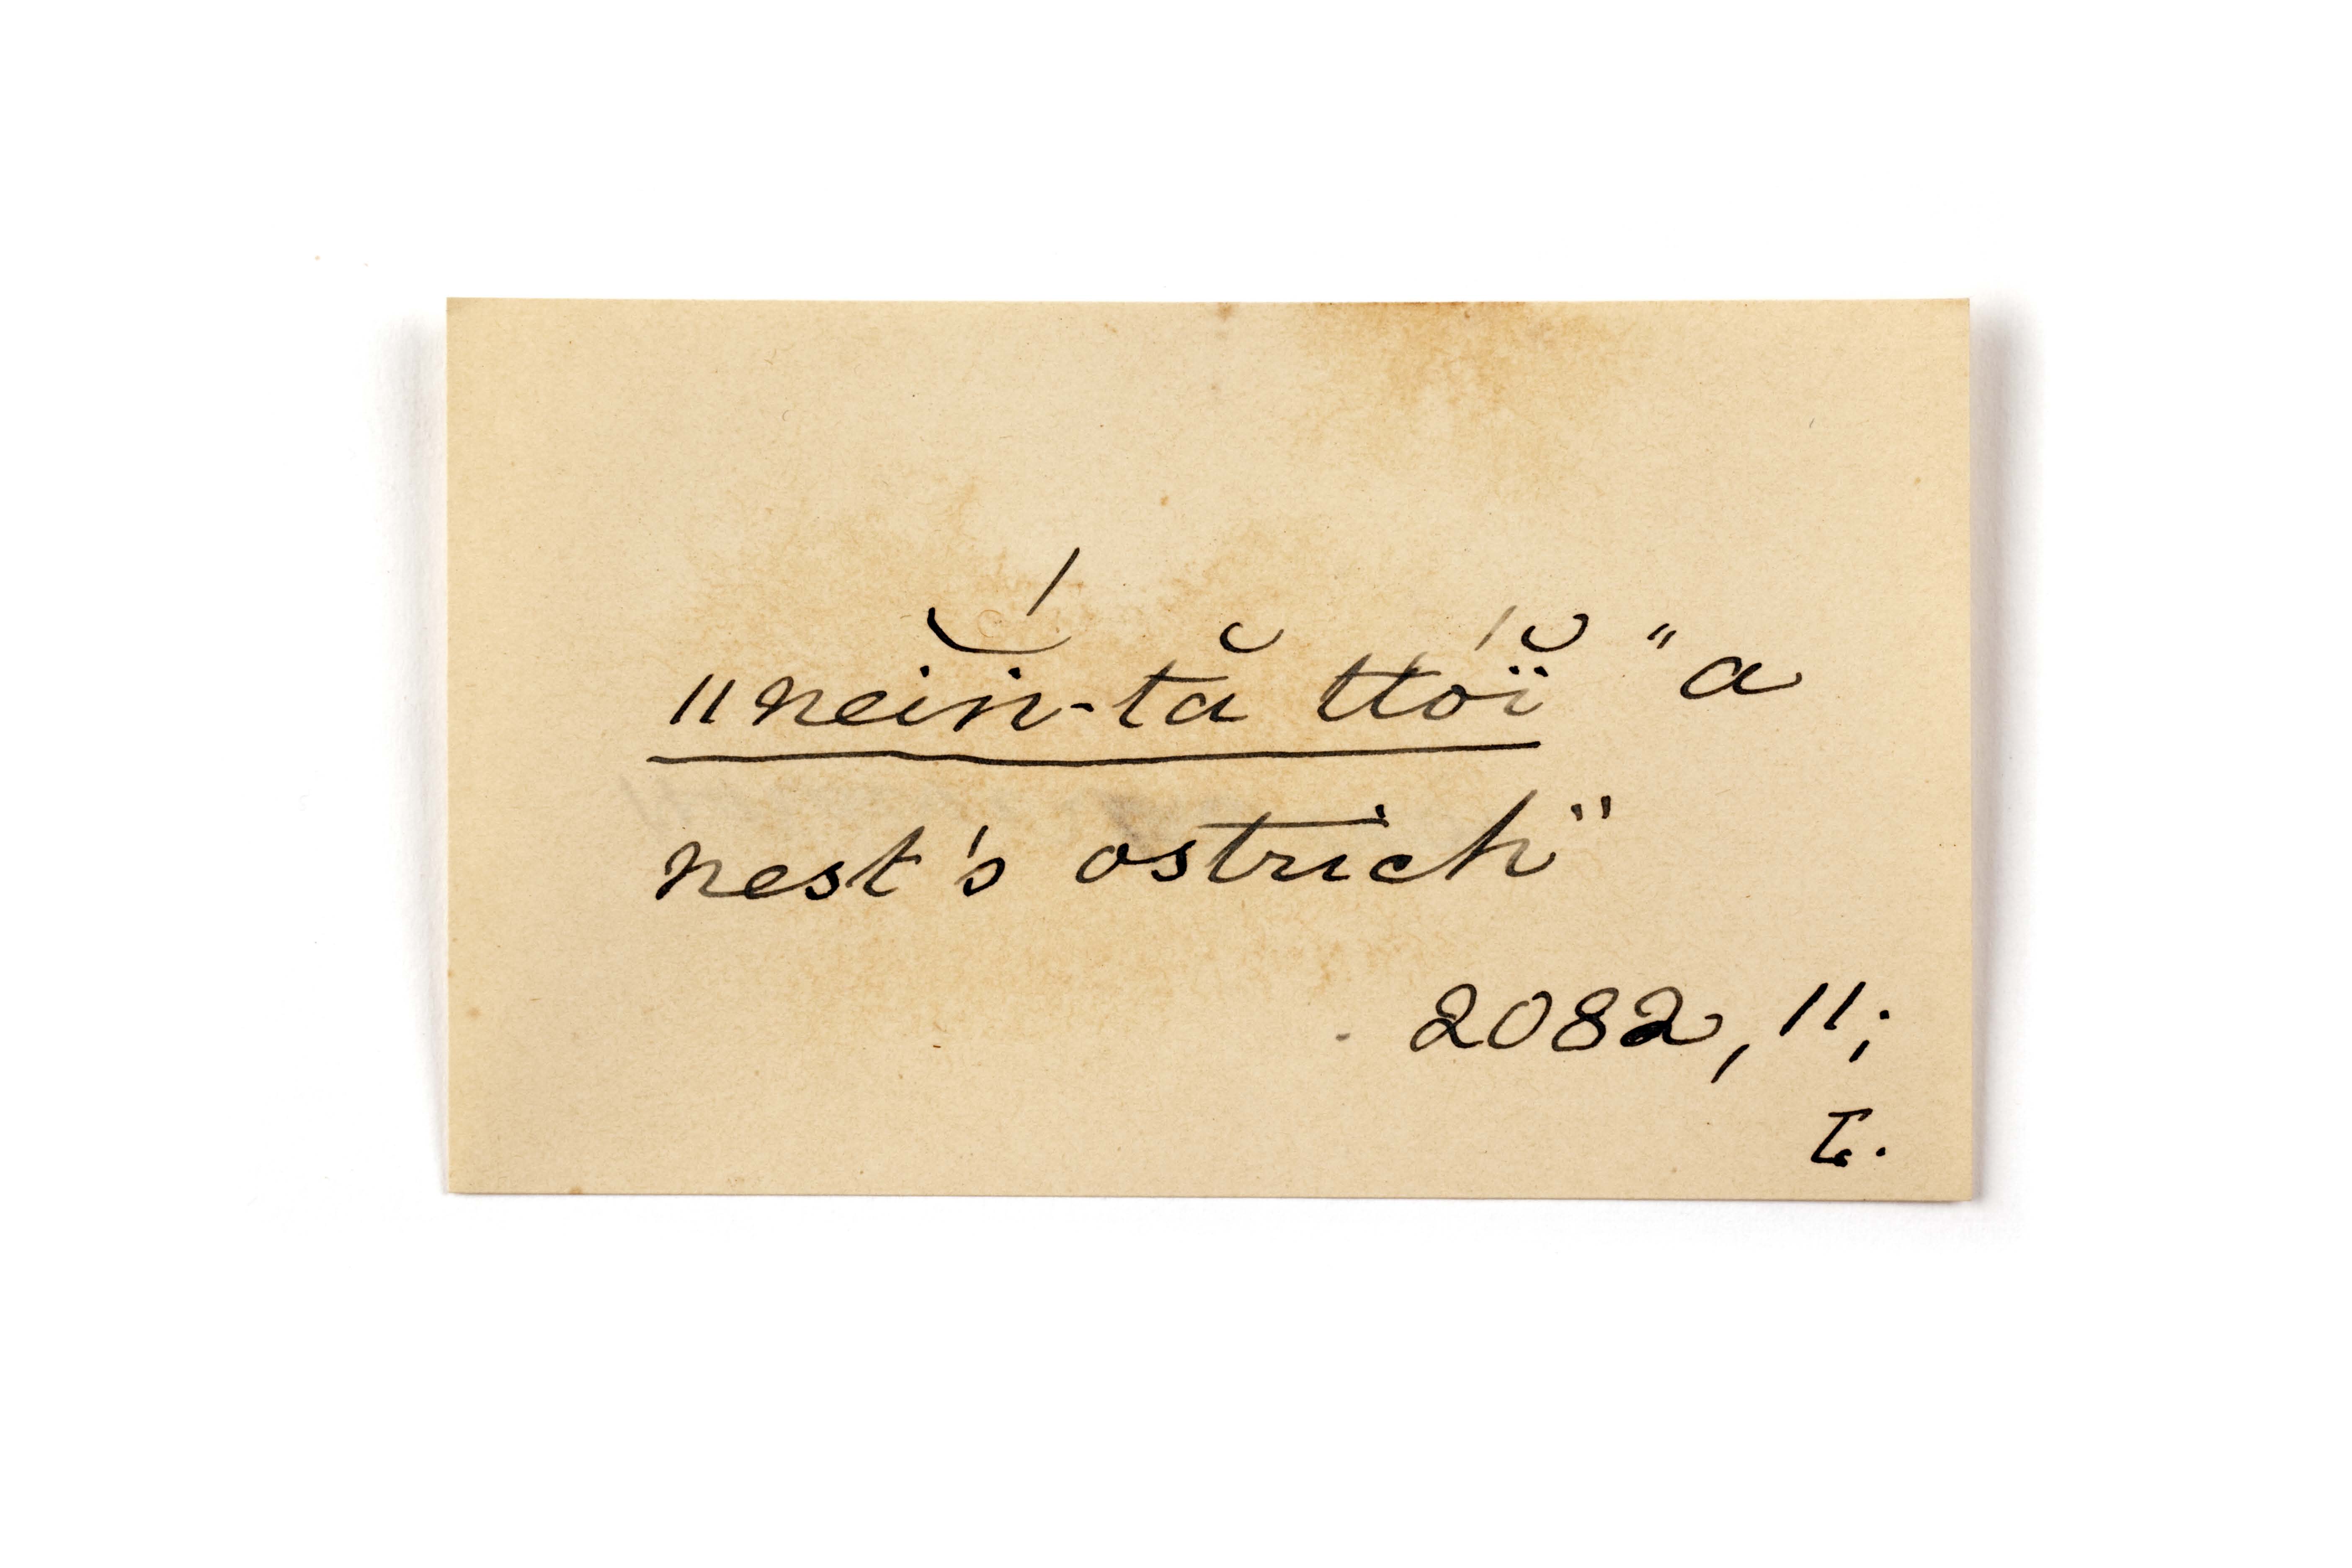 "neǐṅ-tă ttóï̆ "a
nest's ostrich"
2082, 11;
L.